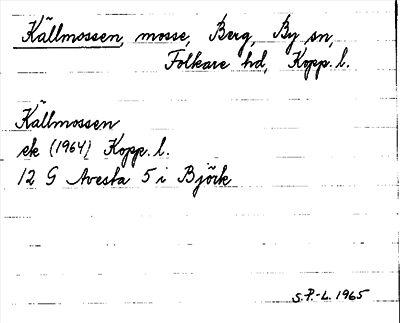 Källmossen, mosse, Berg, By sn,
Folkare hd, Kopp. l.
Källmossen
ek (1964) Kopp. l.
12 G Avesta 5 i Björk
S.P.-L. 1965